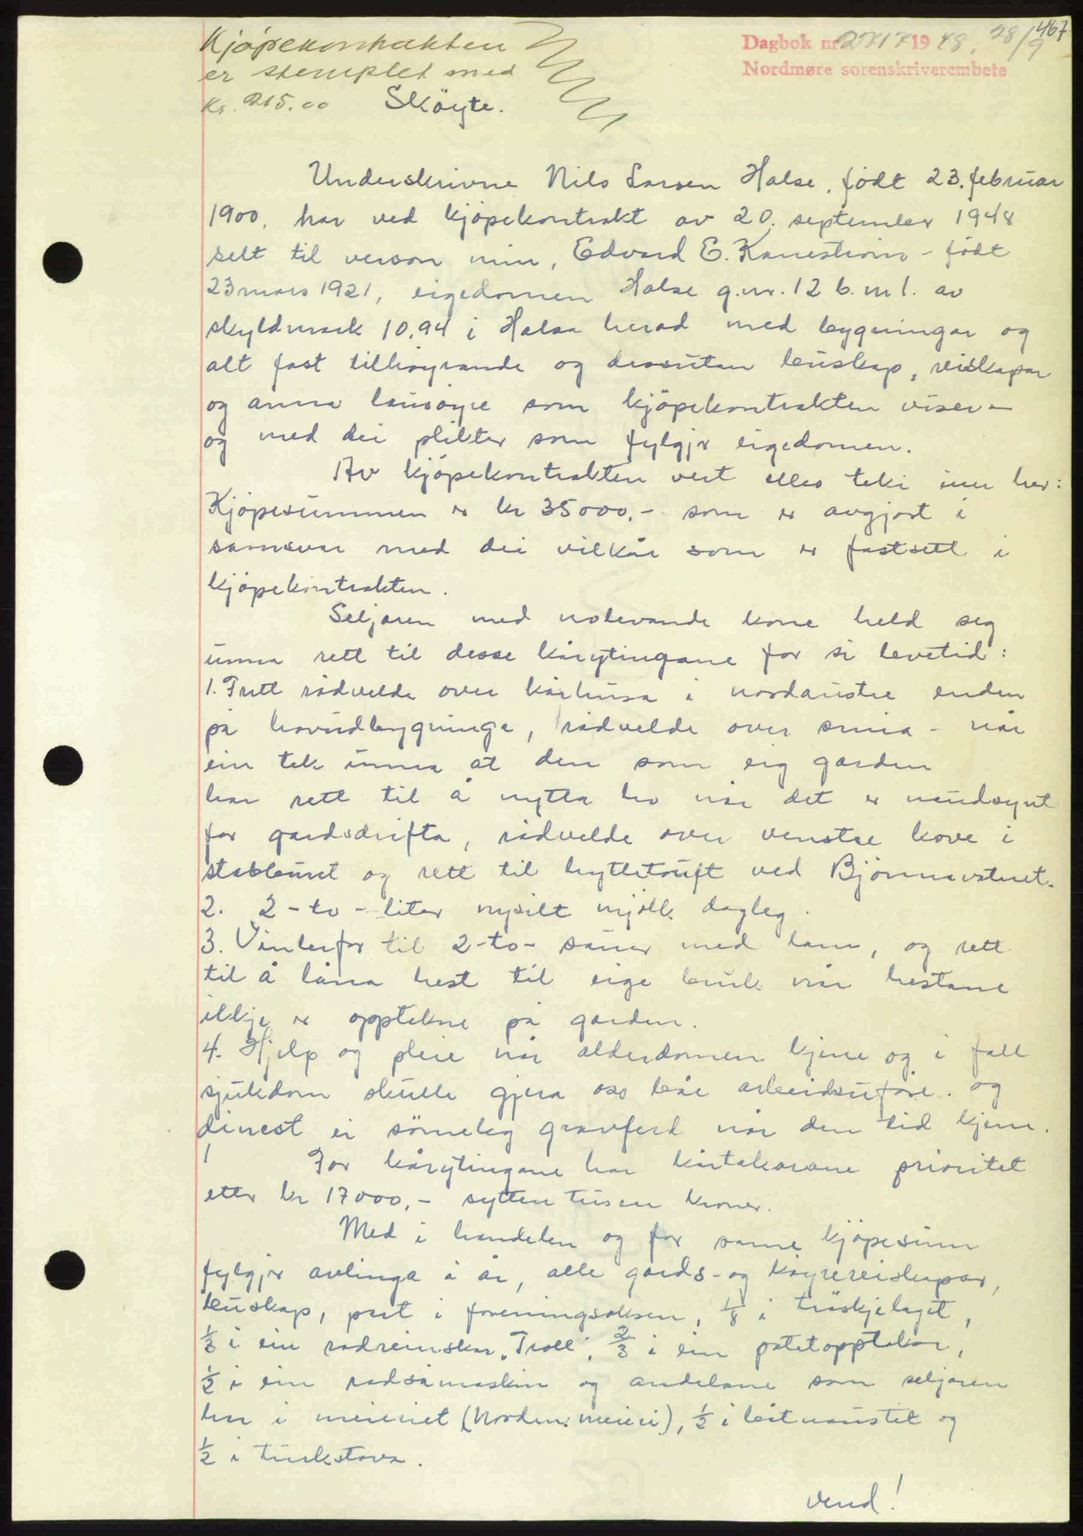 467
Dagbok nr. 2717 1948. 28/9
Nordmøre sorenskriverembete
Kjöpekontrakten
er stemplet med
Kr. 215.00
Sköyte.
Underskrivne Nils Larsen Halse, född 23. februar
1900, har ved kjöpekontrakt av 20. september 1948
selt til verson min, Edvard E. Kanestrøm - födt
23 mars 1921, eigedomen Halse g.nr. 12 b.nr 1. av
skyldmark 10.94 i Halsa herad med bygningar og
alt fast tilhöyrande og dessutan buskap, reiskapar
og anna lausöyre som kjöpekontrakten viser -
og med dei plikter som fylgjer eigedomen.
Av kjöpekontrakten vert elles teke inn her:
Kjöpesummen er kr 35000.- som er avgjort i
samsvar med dei vilkår som er fastsett i
kjöpekontrakten.
Seljaren med nolevande kone held seg
unna rett til desse kårytingane for si levetid:
1. Fritt rådvelde over kårhusa i nordaustre enden
på hovudbygninga, rådvelde over smia - når
ein tek unna at den som eig garden
har rett til å nytta ho når det er naudsynt
for gardsdrifta, rådvelde over venstre kove i
stabburet og rett til hyttetuft ved Bjørnavatnet.
2. 2 - to - liter nysilt mjölk dagleg.
3. Vinterfor til 2 - to - sauer med lam, og rett
til å låna hest til eige bruk når hestane
ikkje er opptekne på garden.
4. Hjelp og pleie når alderdomen kjem og i fall
sjukdom skulle gjera oss båe arbeidsuföre. og
dinest ei sömeleg gravferd når den tid kjem.
For kårytingane har kårtakarane prioritet
etter kr 17000,- sytten tusen kroner.
Med i handelen og for same kjöpesum
fylgjer avlinga i år, alle gards- og köyrereiskapar,
buskap, part i foreningsoksen, 1/8 i tröskjelaget,
1/3 i ein radreinskar "Troll", 2/3 i ein potetopptakar,
1/2 i ein radsåmaskin og andelane som seljaren
har i meieriet (Nordm. meieri), 1/2 i båtnaustet og
1/2 i turkstova.
vend!